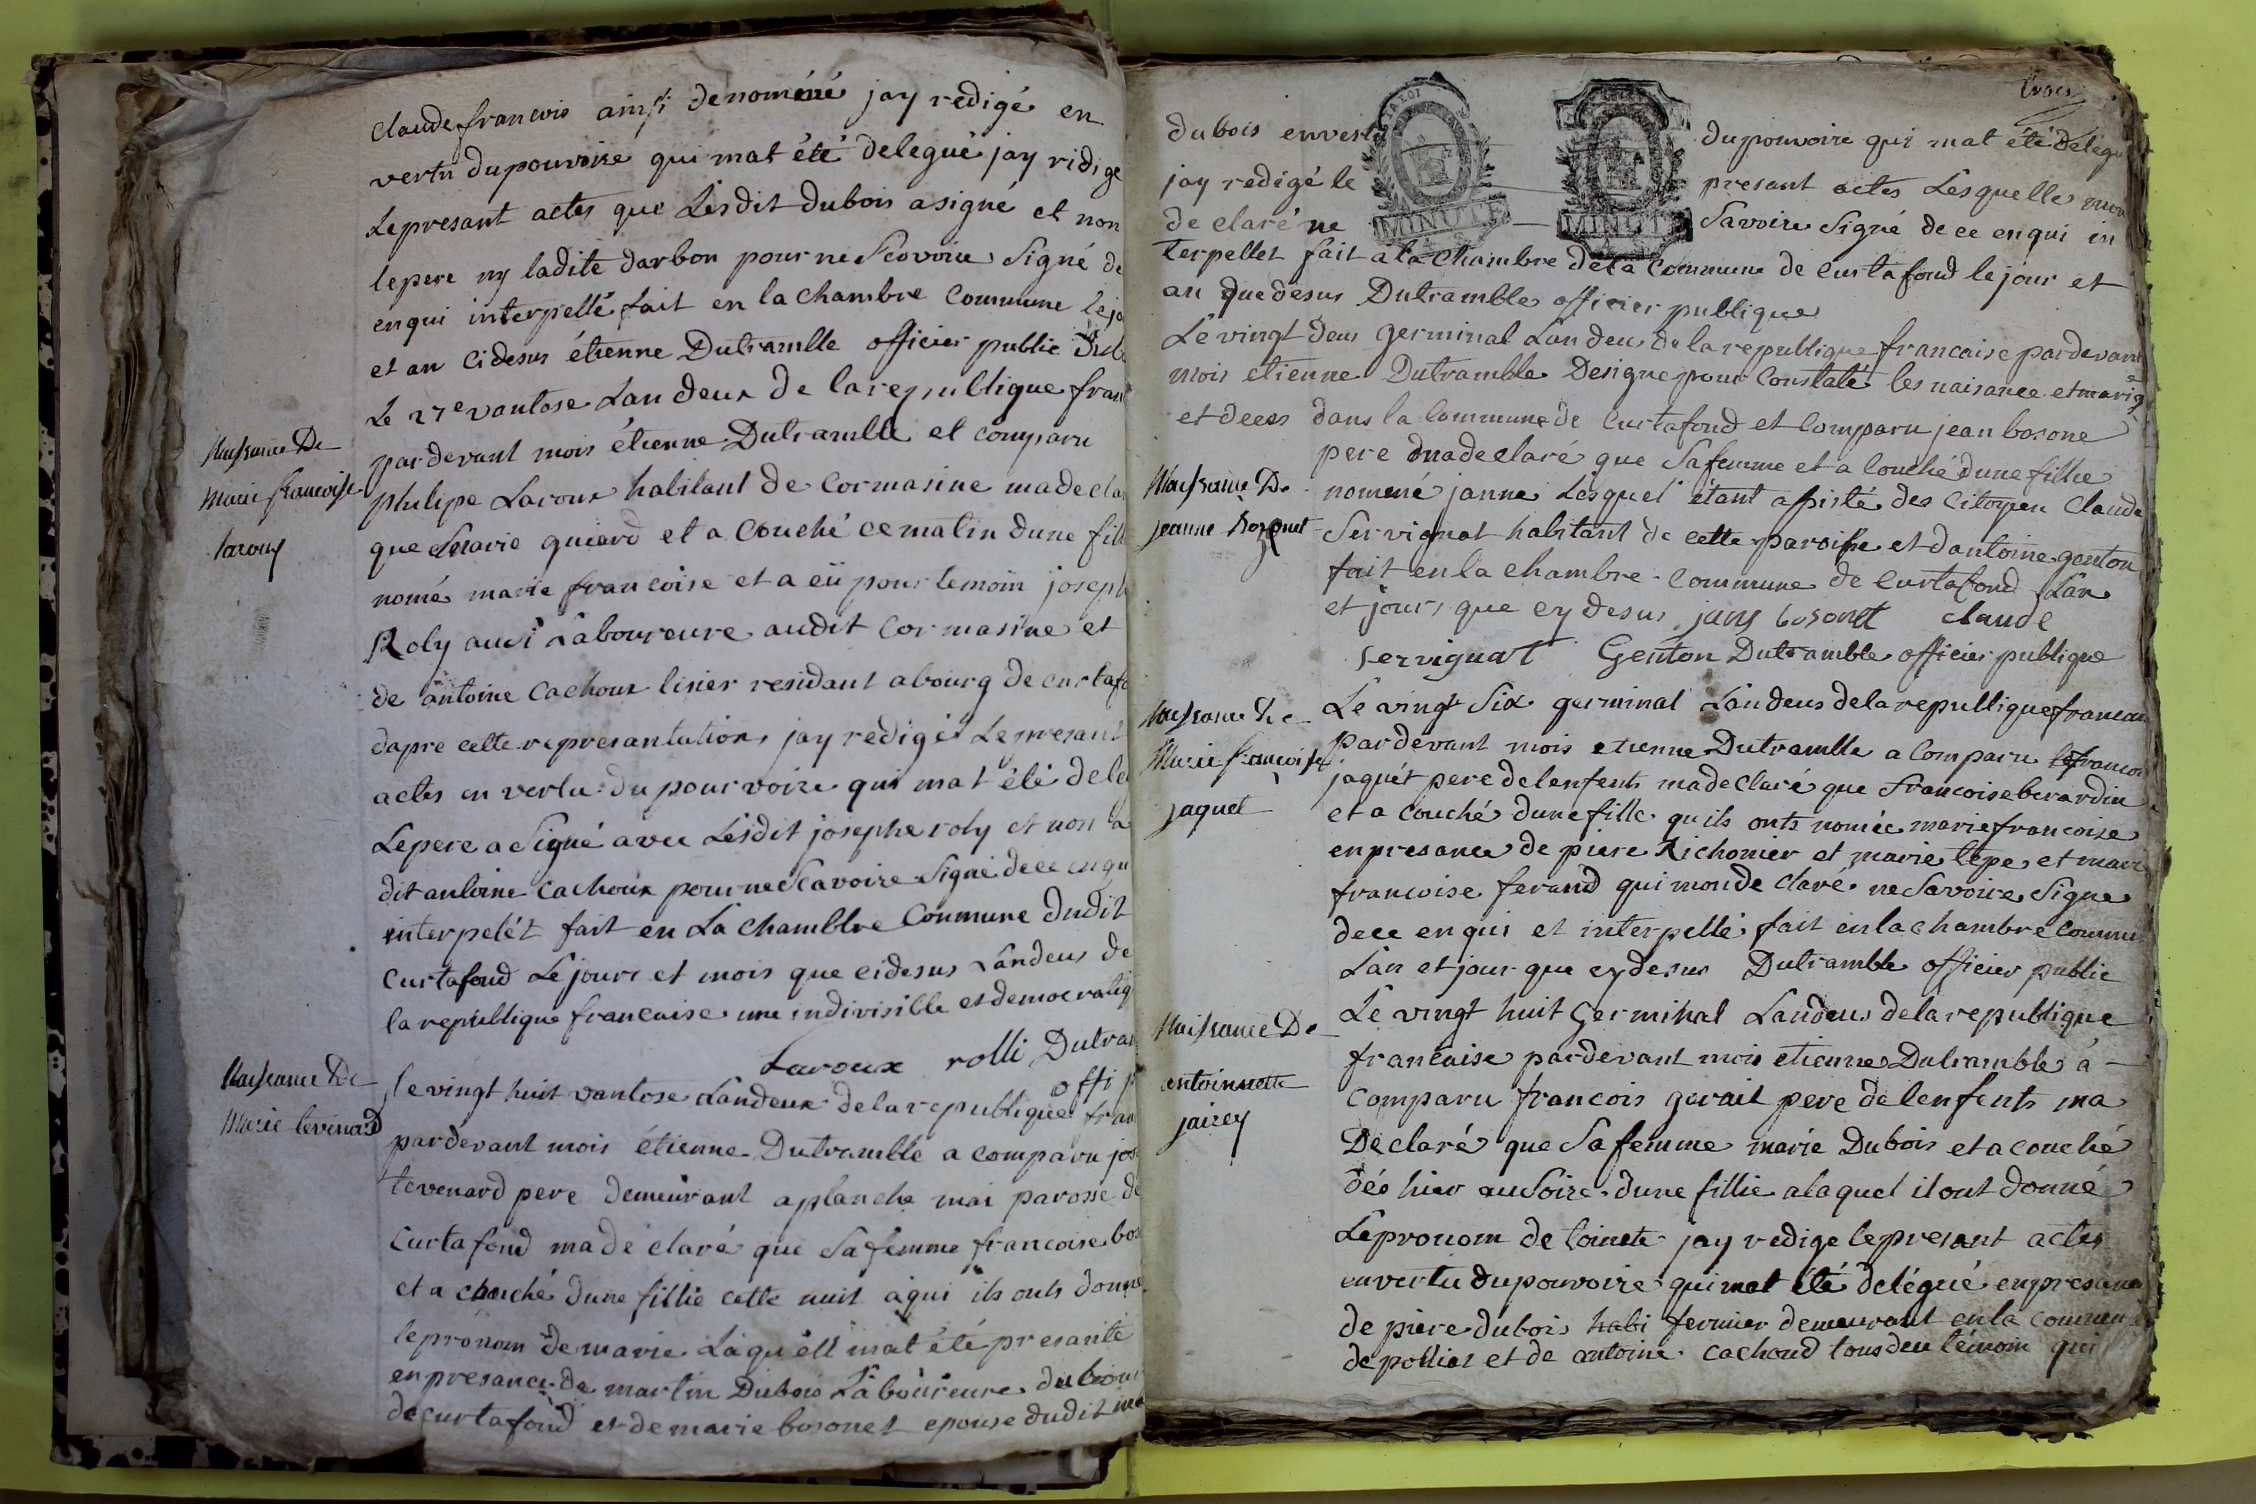 claude francois ainsi denoméné jay redigé en
vertu du pouvoire qui mat été delegué jay ridige
Le presant actes que Lesdit dubois a signé et non
le pere ny ladite darbon pour ne Scovoire Signé de
enqui interpellé fait en la chambre Commune le jo
et an cidesus étienne Dutramble officier public
Le 27e vantose Lan deux de la republique fran
Naissance De
marie francoise
laroux
par devant mois étienne Dutramble et comparu
philipe Laroux habitant de Cormasine madecla
que marie guierd et a Couché ce matin dune fill
nomé marie francoise et a eü pour temoin joseph
Roly ausi Laboureure audit Cormasine et
de antoine Cachoux lisier residant a bourg de curtafo
dapre cette representation jay redigé Le presant
actes en vertu du pourvoire qui mat été dele
Le pere a Signé avec Lesdit josephe roly et non la
dit antoine cachoux pour ne Scavoire Signé de ce enqu
interpelét fait en La chambre Commune dudit
Curtafond Le jour et mois que cidesus Landeus de
la republique francaise une indivisible et democratiq
Laroux rolli Dutram
offi p
Naissance De
Marie tevenard
le vingt huit vantose Landeux de la republique fran
par devant mois étienne Dutramble a comparu jos
tevenard pere demeurant a planche mai parosse de
Curtafond madéclaré que Safemme francoise bos
et a couché dune fillie cette nuit a qui ils onts donne
le pronom de marie Laquell mat été presanté
en presance de martin Dubois Laboureure du bour
de curtafond et de marie bosonet epouse dudit ma
trois
dubois en vertu du pouvoire qui mat été Delegu
jay redigé le presant actes Lesquelle mon
declaré ne Savoire Signé de ce enqui in
MINUTE MINUTE
terpellet fait a la Chambre de la Commune de Curtafond le jour et
an que desus Dutramble officier publique
Le vingt deus germinal Lan deus de la republique francaise par devant
mois etienne Dutramble Designé pour Constaté les naisance et marig
et deces dans la Commune de Curtafond et Comparu jean bosone
pere ma declaré que Safemme et a Couché dune fillie
Naissance De
jeanne bozonet
nomené janne Lesquel étant asisté des Citoyen Claude
Servignat habitant de cette paroisse et dantoine genton
fait en la chambre Commune de Curtafond Lan
et jours que cy desus jans bosonet claude
servignat Genton Dutramble officier publique
Naissance De
Marie francoise
jaquet
Le vingt Six germinal Landeus de la republique francais
par devant mois etienne Dutramble a Comparu francoi
jaquét pere de lenfents madeclaré que francoise berardin
et a couché dune fille quils onts nomée marie francoise
en presance de piere Richonier et marie tepe et marie
francoise ferand qui mon declaré ne Savoire Signe
de ce enqui et interpellé fait en la chambre Commu
Lan et jour que cy desus Dutramble officier public
Naissance De
antoinnette
jairey
Le vingt huit Germinal Landeus de la republique
francaise par devant mois etienne Dutramble á
Comparu francois gerait pere de lenfents ma
Declaré que Safemme marie Dubois et a couché
dés hier au Soire dune fillie a laquel il ont donné
Le pronom de toinete jay redige le presant actes
en vertu du pouvoire qui mat été delégué en presance
de piere dubois habi fermier demeurant en la Commune
de polliat et de antoine cachoud tous deu témoin qui